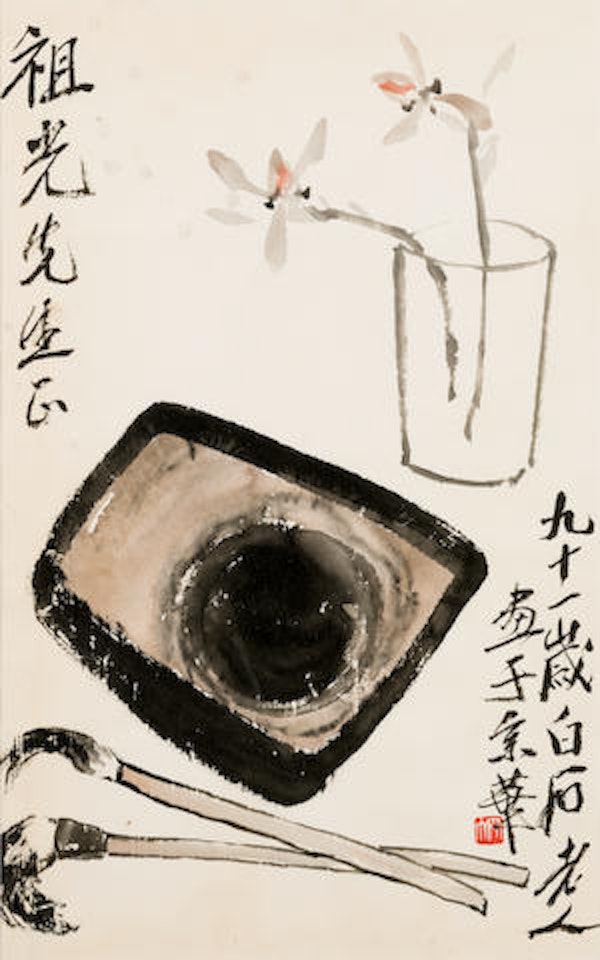 九十一歲白石老人
畫于京華
祖光先生正